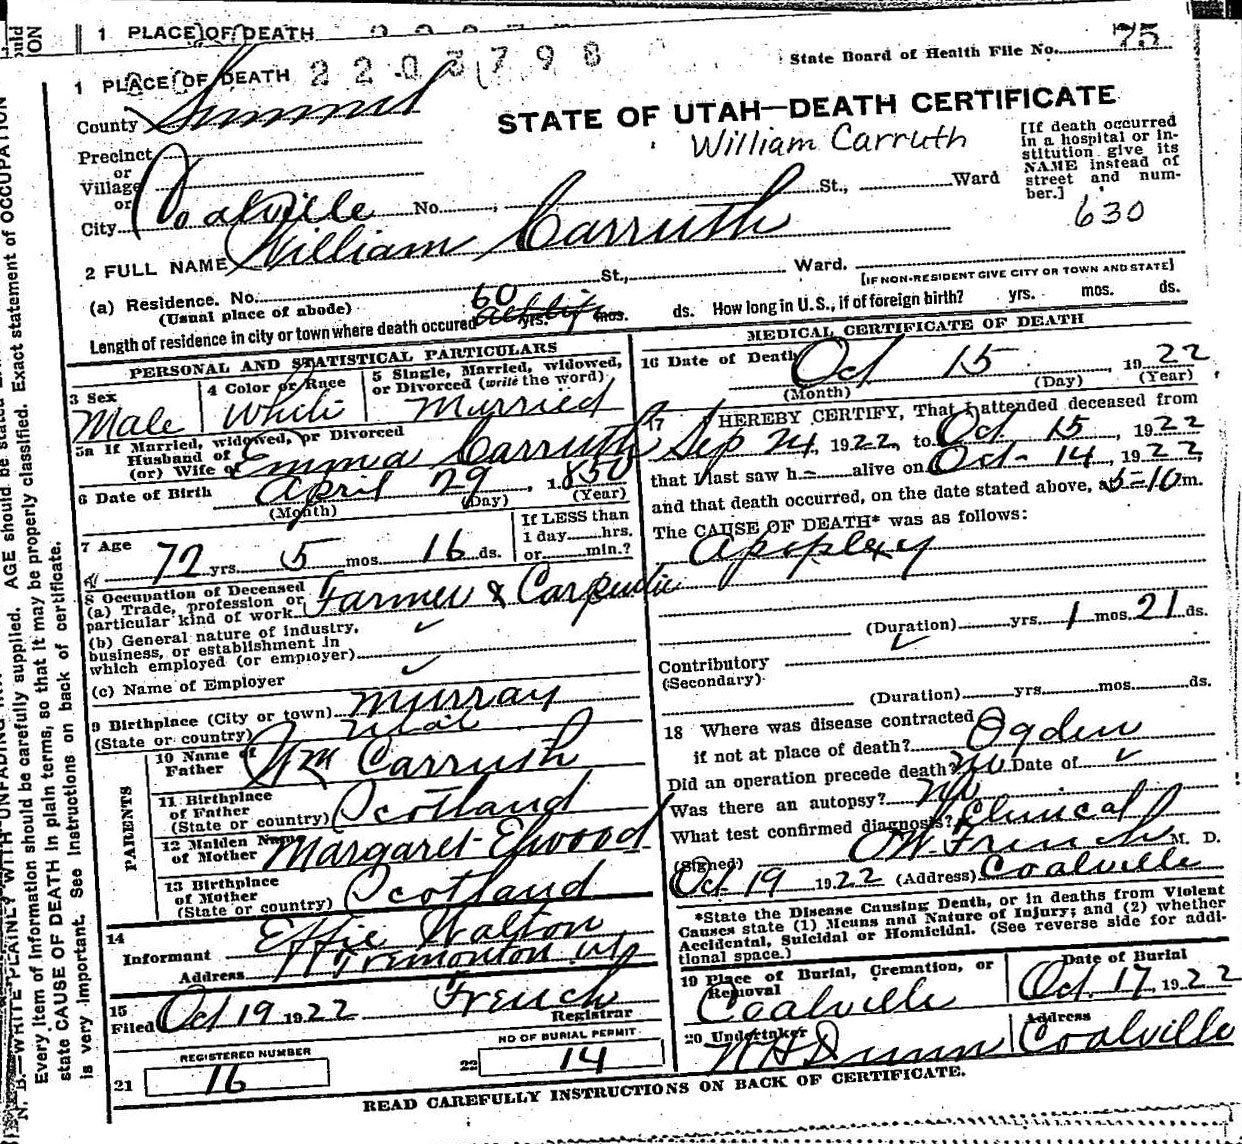 1 PLACE OF DEATH
2203798
State Board of Health File No. 75
1 PLACE OF DEATH
County Summit
STATE OF UTAH—DEATH CERTIFICATE
William Carruth
[If death occurred in a hospital or institution give its NAME instead of street and number.]
630
Precinct
or
Village
or
City Coalville No. St., Ward
2 FULL NAME William Carruth
(a) Residence. No. St., Ward.
(Usual place of abode)
[IF NON-RESIDENT GIVE CITY OR TOWN AND STATE]
Length of residence in city or town where death occured 60 yrs. mos. ds. How long in U.S., if of foreign birth? yrs. mos. ds.
PERSONAL AND STATISTICAL PARTICULARS
3 Sex
Male
4 Color or Race
White
5 Single, Married, Widowed, or Divorced (write the word)
Married
5a If Married, widowed, or Divorced
Husband of
(or) Wife of Emma Carruth
6 Date of Birth April 29, 1850
(Month) (Day) (Year)
7 Age
72 yrs. 5 mos. 16 ds.
If LESS than
1 day hrs.
or min.?
8 Occupation of Deceased
(a) Trade, profession or
particular kind of work Farmer & Carpenter
(b) General nature of industry,
business, or establishment in
which employed (or employer)
(c) Name of Employer
9 Birthplace (City or town) Murray
(State or country) Utah
PARENTS
10 Name of
Father Wm Carruth
11 Birthplace
of Father
(State or country) Scotland
12 Maiden Name
of Mother Margaret Elwood
13 Birthplace
of Mother
(State or country) Scotland
14
Informant Effie Walton
Address Tremonton
15
Filed Oct 19 1922 French
Registrar
REGISTERED NUMBER
21 16
NO OF BURIAL PERMIT
22 14
MEDICAL CERTIFICATE OF DEATH
16 Date of Death Oct 15, 1922
(Month) (Day) (Year)
17 I HEREBY CERTIFY, That I attended deceased from
Sep 24, 1922, to Oct 15, 1922
that I last saw h alive on Oct 14, 1922,
and that death occurred, on the date stated above, at 5=10 m.
The CAUSE OF DEATH* was as follows:
Apoplexy
(Duration) yrs. 1 mos. 21 ds.
Contributory
(Secondary)
(Duration) yrs. mos. ds.
18 Where was disease contracted
if not at place of death? Ogden
Did an operation precede death? No Date of
Was there an autopsy? No
What test confirmed diagnosis? Clinical
(Signed) French M. D.
Oct 19 1922 (Address) Coalville
*State the Disease Causing Death, or in deaths from Violent
Causes state (1) Means and Nature of Injury; and (2) whether
Accidental, Suicidal or Homicidal. (See reverse side for additional space.)
19 Place of Burial, Cremation, or
Removal
Coalville
Date of Burial
Oct. 17, 1922
20 Undertaker
Dunn
Address
Coalville
READ CAREFULLY INSTRUCTIONS ON BACK OF CERTIFICATE.
N. B.—WRITE PLAINLY WITH UNFADING
Every item of information should be carefully supplied. AGE should be stated
state CAUSE OF DEATH in plain terms, so that it may be properly classified. Exact statement of OCCUPATION
is very important. See instructions on back of certificate.